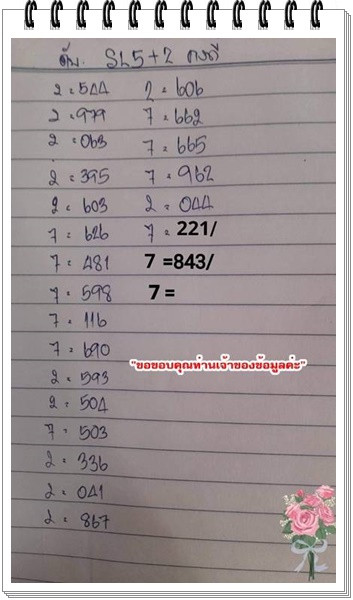 SL5+2
2 = 544
2 = 979
2 = 063
2 = 395
2 = 603
7 = 626
7 = 481
7 = 598
7 = 116
7 = 690
2 = 593
2 = 504
7 = 503
2 = 336
2 = 041
2 = 867
2 = 606
7 = 662
7 = 665
7 = 962
2 = 044
7 = 221/
7 =843/
7 =
"ขอขอบคุณท่านเจ้าของข้อมูลค่ะ"